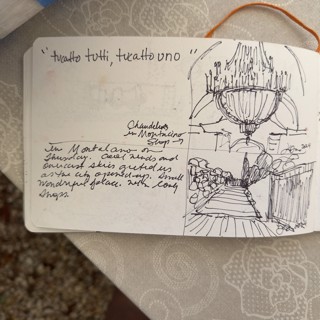 "tucatto tutti, tucatto uno"
Chandeliers
in Montalcino
Shop →
In Montalcino on
Thursday. Cool winds and
overcast skies greeted us
as the city opened up. Small
wonderful place. with lovely
shops.